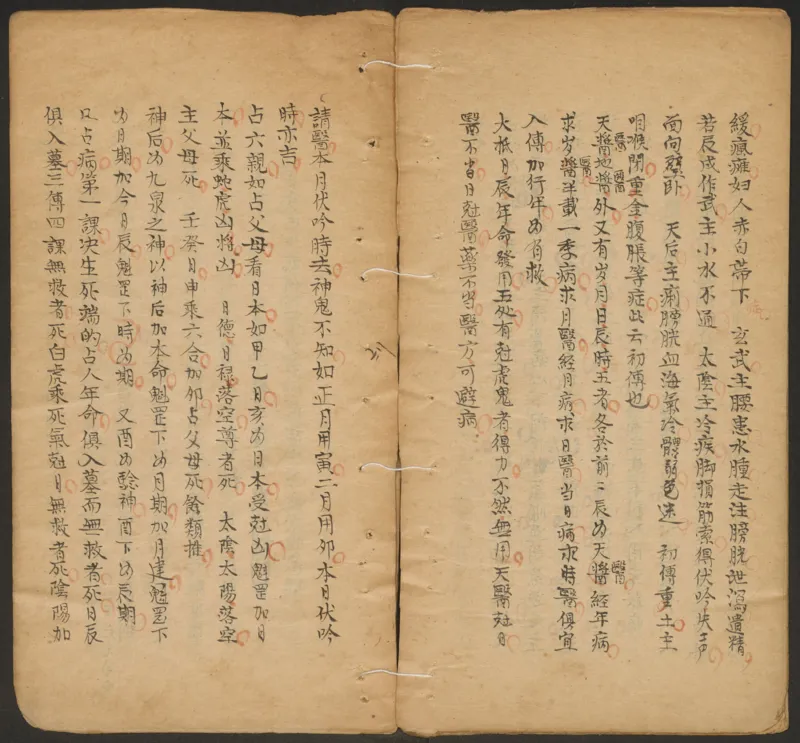 緩瘋癱妇人赤白蒂下　玄武主腰患水腫走注膀胱泄瀉遺精
若辰戌作武主小水不通　太陰主冷疾脚損筋索得伏吟失声
面向壁卧　天后主痢膀胱血海氣冷髒弱色迷　初傳重土主
咽喉閉重金腹脹等症此云初傳也
天醬地醬外又有岁月日辰時五者各於前二辰為天醬經年病
醫
醫
醫
求岁醬半載一季病求月醫經月病求日醫当日病求時醫俱宜
醫
入傳加行年為有救
大抵月辰年命發用五处有尅虎鬼者得力不然無用天醫尅日
醫不当日尅醫藥不当醫方可避病
請醫本月伏吟時去神鬼不知如正月用寅二月用卯本日伏吟
時亦吉
占六親如占父母看日本如甲乙日亥為日本受尅凶魁罡加日
本並乘蛇虎凶將凶　日德日禄落空尊者死　太陰太陽落空
主父母死　壬癸日申乘六合加卯占父母死餘類推
神后為九泉之神以神后加本命魁罡下為月期加月建魁罡下
為月期加今日辰魁罡下時為期　又酉為騐神酉下為辰期
凡占病第一課决生死端的占人年命俱入墓而無救者死日辰
俱入墓三傳四課無救者死白虎乘死氣尅日無救者死陰陽加